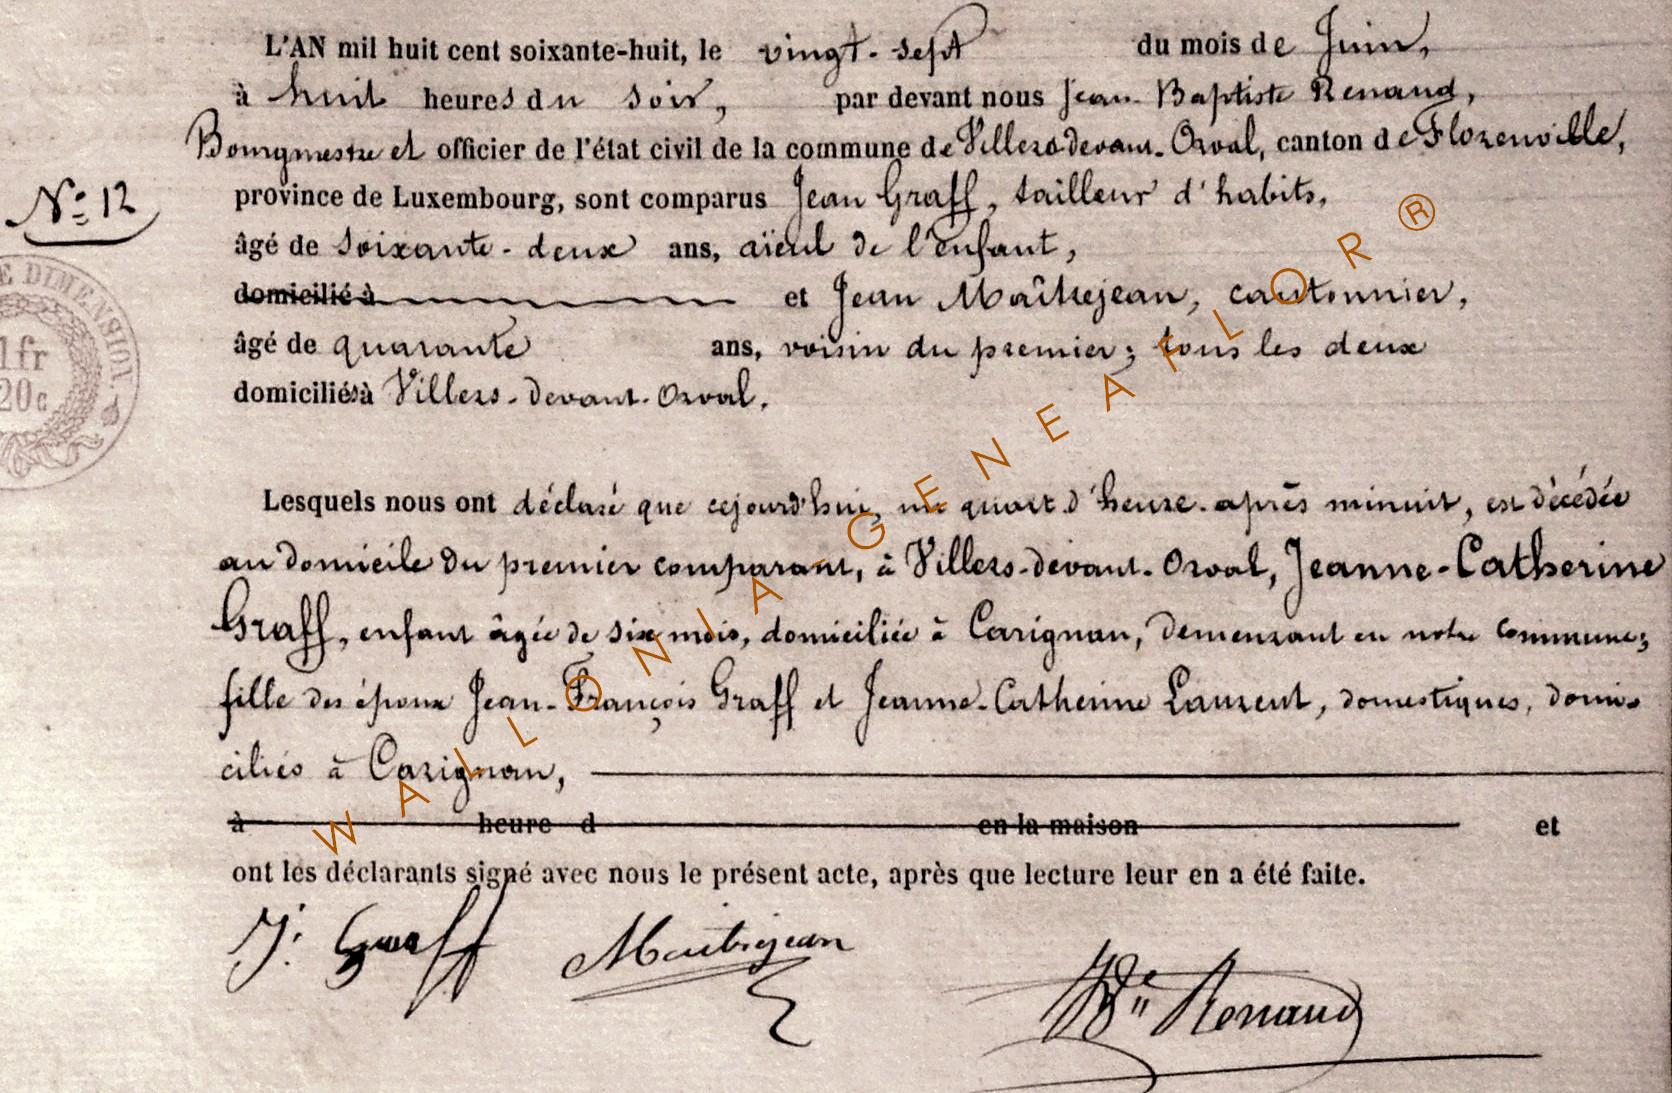 L'AN mil huit cent soixante-huit, le vingt-sept du mois de Juin,
à huit heures du soir, par devant nous Jean-Baptiste Renaud,
Bourgmestre et officier de l'état civil de la commune de Villers-devant-Orval, canton de Florenville,
province de Luxembourg, sont comparus Jean Graff, tailleur d'habits,
N° 12
âgé de soixante-deux ans, aïeul de l'enfant,
domicilié à et Jean Maîtrejean, cantonnier,
âgé de quarante ans, voisin du premier; tous les deux
domiciliés à Villers-devant-Orval.
E DIMENSION.
1 fr
20c
Lesquels nous ont déclaré que cejourd'hui, un quart d'heure après minuit, est décédée
au domicile du premier comparant, à Villers-devant-Orval, Jeanne-Catherine
Graff, enfant âgée de six mois, domiciliée à Carignan, demeurant en notre commune;
fille des époux Jean-François Graff et Jeanne-Catherine Laurent, domestiques, domi-
ciliés à Carignan,
à heure d en la maison et
ont les déclarants signé avec nous le présent acte, après que lecture leur en a été faite.
J. Graff Maitrejean Bte Renaud
WALLONIA-GENEAFLOR®